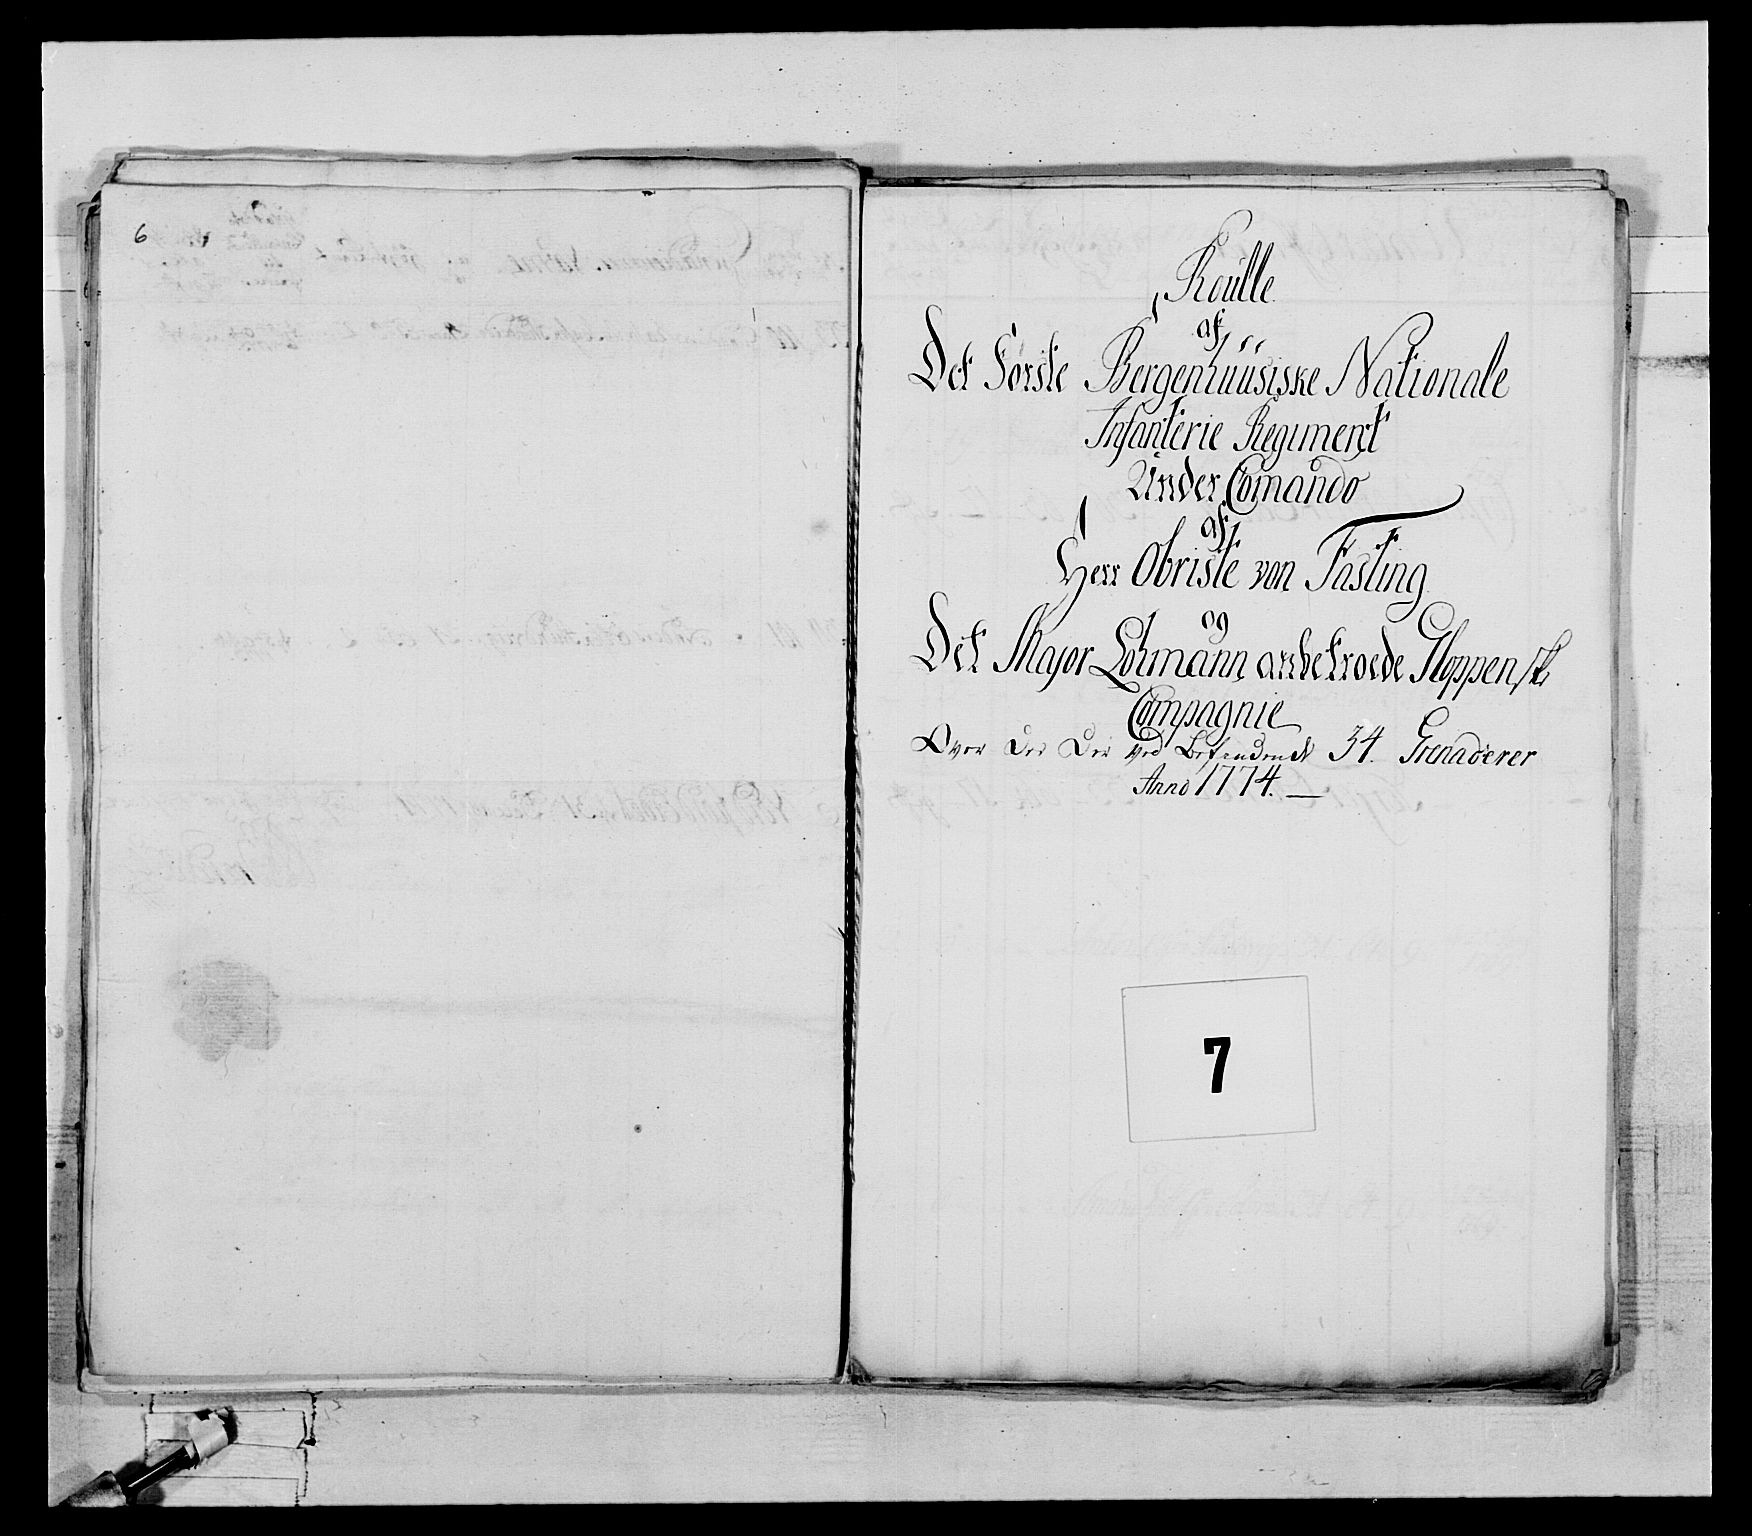 6
Roulle
af
Det Første Bergenhuusiske Nationale
Infanterie Regiment
Under Comando
af
Herr Obriste von Fasting
og
Det Major Lohmann anbetroede Gloppenske
Compagnie
Over De Der ved Befindende 34. Grenaderer
Anno 1774.
7